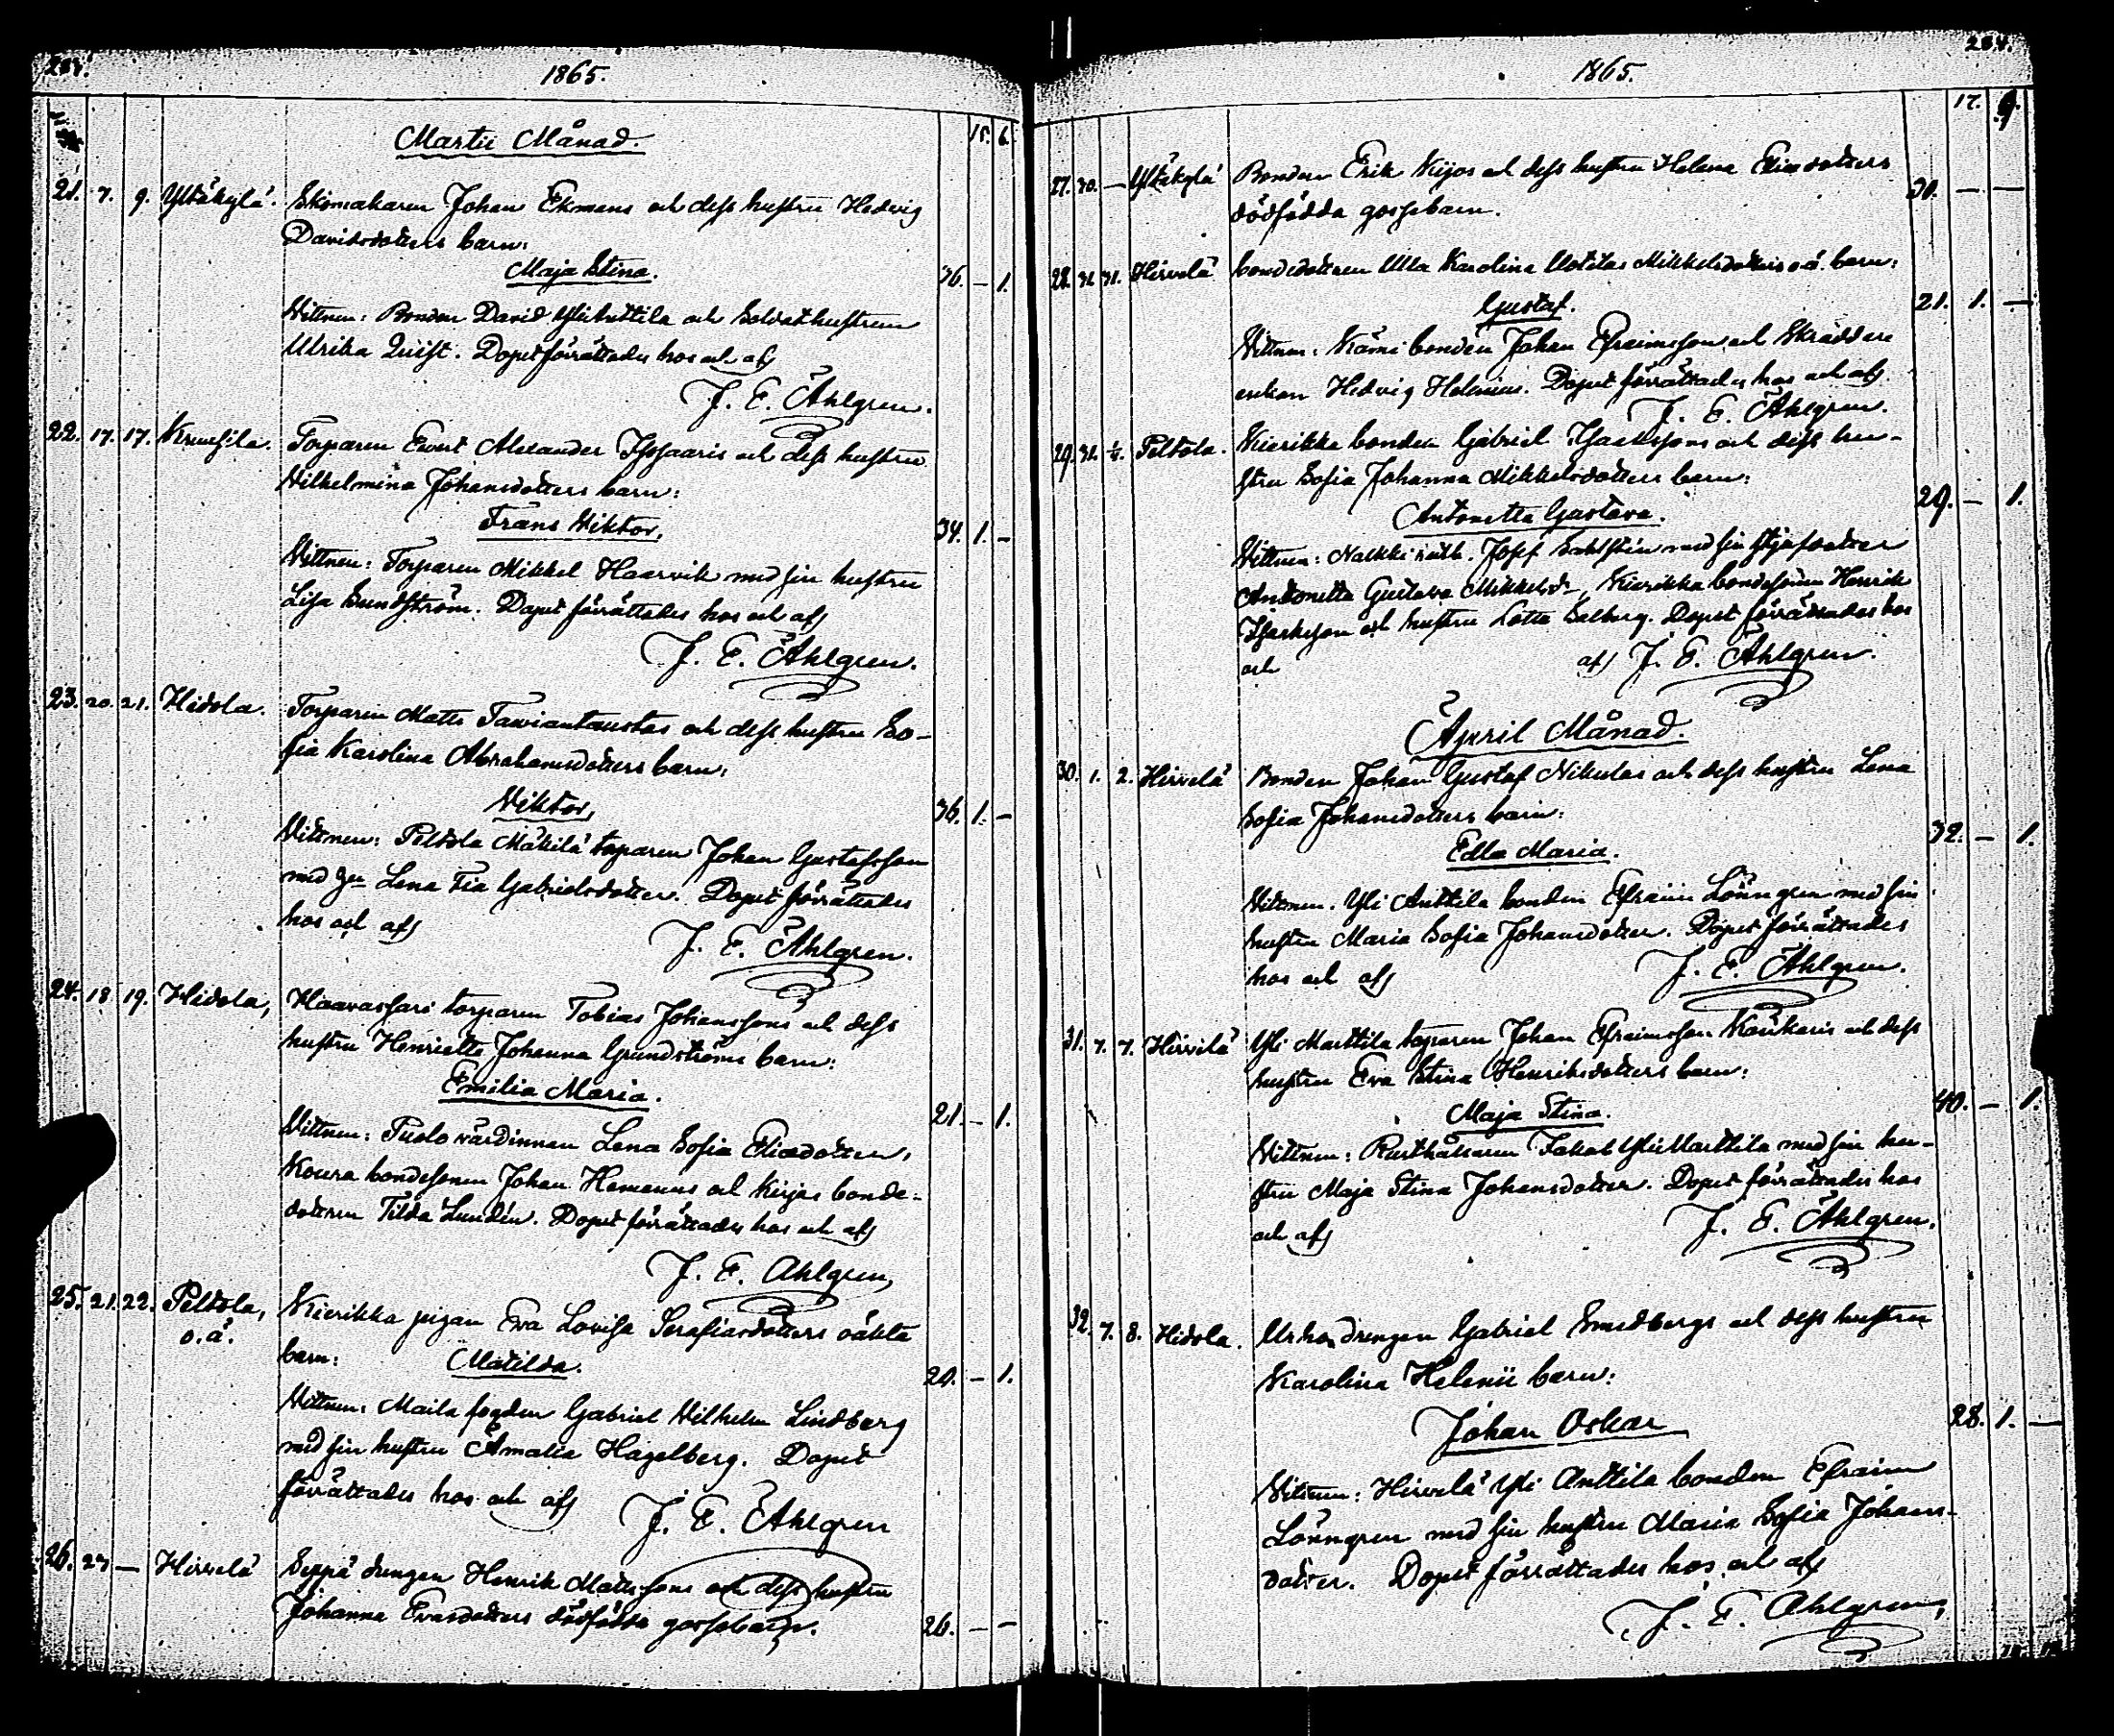 1865.
Martii Månad.
15. 6.
21. 7. 9. Yltäkylä. Skomakaren Johan Ekmans och dess hustru Hedvig
Davidsdotters barn:
Maja Stina.
36. — 1.
Vittnen: Bonden David och Soldathustrun
Ulrika Quist. Dopet förrättades hos och af
J. E. Ahlgren.
22. 17. 17. Torparen Evert Alexander och dess hustru
Vilhelmina Johansdotters barn:
Frans Viktor,
34. 1. —
Vittnen: Torparen Mikkel Haarvik med sin hustru
Lisa Sundström. Dopet förrättades hos och af
J. E. Ahlgren.
23. 20. 21. Hidola. Torparen Matts Tawiantaustas och dess hustru So-
fia Karolina Abrahamsdotters barn:
Viktor,
36. 1. —
Vittnen: Peltola Mäkilä torparen Johan Gustafsson
med Lena Fia Gabrielsdotter. Dopet förrättades
hos och af
J. E. Ahlgren.
24. 18. 19. Hidola, torparen Tobias Johanssons och dess
hustru Henriette Johanna Grundströms barn:
Emilia Maria.
21. — 1.
Vittnen: värdinnan Lena Sofia Eliasdotter,
Koura bondesonen Johan Hemanus och Kirjas bonde-
dottren Tilda Lundén. Dopet förrättades hos och af
J. E. Ahlgren,
25. 21. 22. Peltola, Kierikka pigan Eva Lovisa Serafiasdotters oäkta
o.ä.
barn: Matilda.
20. — 1.
Vittnen: Maila fogden Gabriel Vilhelm Lindberg
med sin hustru Amalia Hagelberg. Dopet
förrättades hos och af J. E. Ahlgren
26. 23 — Hirvelä Seppä drengen Henrik Mattssons och dess hustru
Johanna Evasdotters dödfödda gossebarn.
26. — —
1865.
17. 9.
27. 30. — Yltäkylä Bonden Erik Kijos och dess hustru Helena Eliasdotters
30. — —
dödfödda gossebarn.
28. 31. 31. Hirvelä bondedottren Ulla Karolina Uotilas Mikkelsdotters o.ä. barn:
Gustaf.
21. 1. —
Vittnen: bonden Johan Efraimsson och Skräddare
enkan Hedvig Helenius. Dopet förrättades hos och af
J. E. Ahlgren.
29. 31. Peltola. Kierikka bonden Gabriel Isakssons och dess hu-
stru Sofia Johanna Mikkelsdotters barn:
Antonetta Gustava.
29. — 1.
Vittnen: Josef Sahlstén med sin styfdotter
Antonetta Gustava Mikkelsd., Kierikka bondesonen Henrik
Isaksson och hustru Lotta Salberg. Dopet förrättades hos
och af J. E. Ahlgren.
April Månad.
30. 1. 2. Hirvelä Bonden Johan Gustaf Nikulas och dess hustru Lena
Sofia Johansdotters barn:
32. — 1.
Edla Maria.
Vittnen. Yli Anttila bonden Efraim Lönngren med sin
hustru Maria Sofia Johansdotter. Dopet förrättades
hos och af J. E. Ahlgren.
31. 7. 7. Hirvelä Yli Marttila torparen Johan Efraimsson och dess
hustru Eva Stina Henriksdotters barn:
Maja Stina.
40. — 1.
Vittnen: Rusthållaren Jakob Yli Marttila med sin hu-
stru Maja Stina Johansdotter. Dopet förrättades hos
och af J. E. Ahlgren.
32. 7. 8. Hidola. drengen Gabriel Smedbergs och dess hustru
Karolina Helenii barn:
Johan Oskar
28. 1. —
Vittnen: Hirvelä Yli Anttila bonden Efraim
Lönngren med sin hustru Maria Sofia Johans-
dotter. Dopet förrättades hos och af
J. E. Ahlgren,